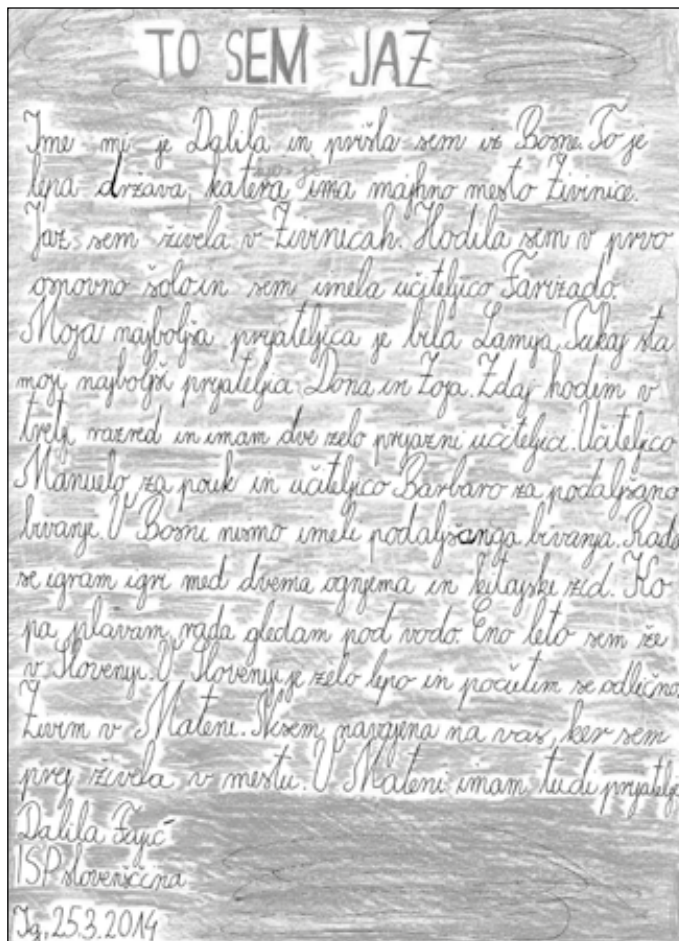 TO SEM JAZ
Ime mi je Dalila in prišla sem iz Bosne. To je
lepa država, katera ima majhno mesto Živinice.
Jaz sem živela v Živinicah. Hodila sem v prvo
osnovno šolo in sem imela učiteljico Farizado.
Moja najboljša prijateljica je bila Lamija. Tukaj sta
moji najboljši prijateljici Dona in Zoja. Zdaj hodim v
tretji razred in imam dve zelo prijazni učiteljici. Učiteljico
Manuelo za pouk in učiteljico Barbaro za podaljšano
bivanje. V Bosni nismo imeli podaljšanga bivanja. Rada
se igram igri med dvema ognjema in kitajski zid. Ko
pa plavam, rada gledam pod vodo. Eno leto sem že
v Sloveniji. V Sloveniji je zelo lepo in počutim se odlično.
Živim v Mateni. Nisem navajena na vas, ker sem
prej živela v mestu. V Mateni imam tudi prijatelje
Dalila Fejić
ISP slovenščina
Ig, 25.3.2014